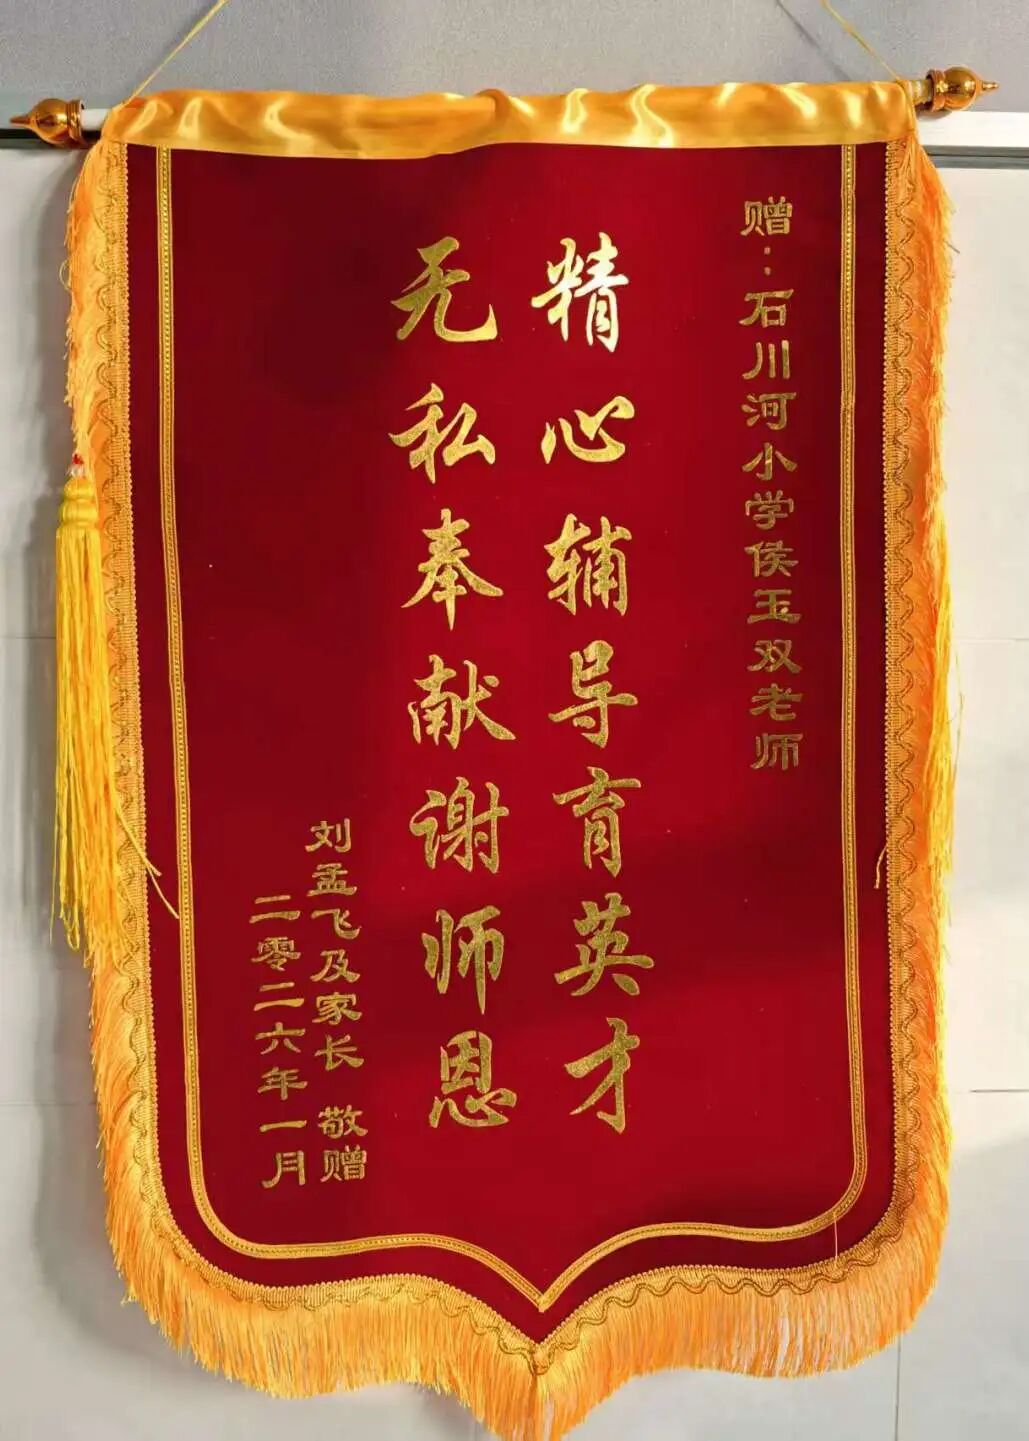 赠：石川河小学侯玉双老师
精心辅导育英才
无私奉献谢师恩
刘孟飞及家长 敬赠
二零二六年一月